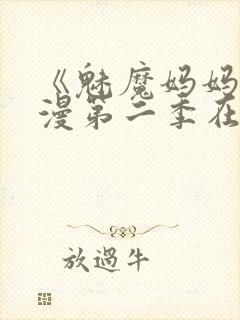 《魅魔妈妈
漫第二季在
放過牛